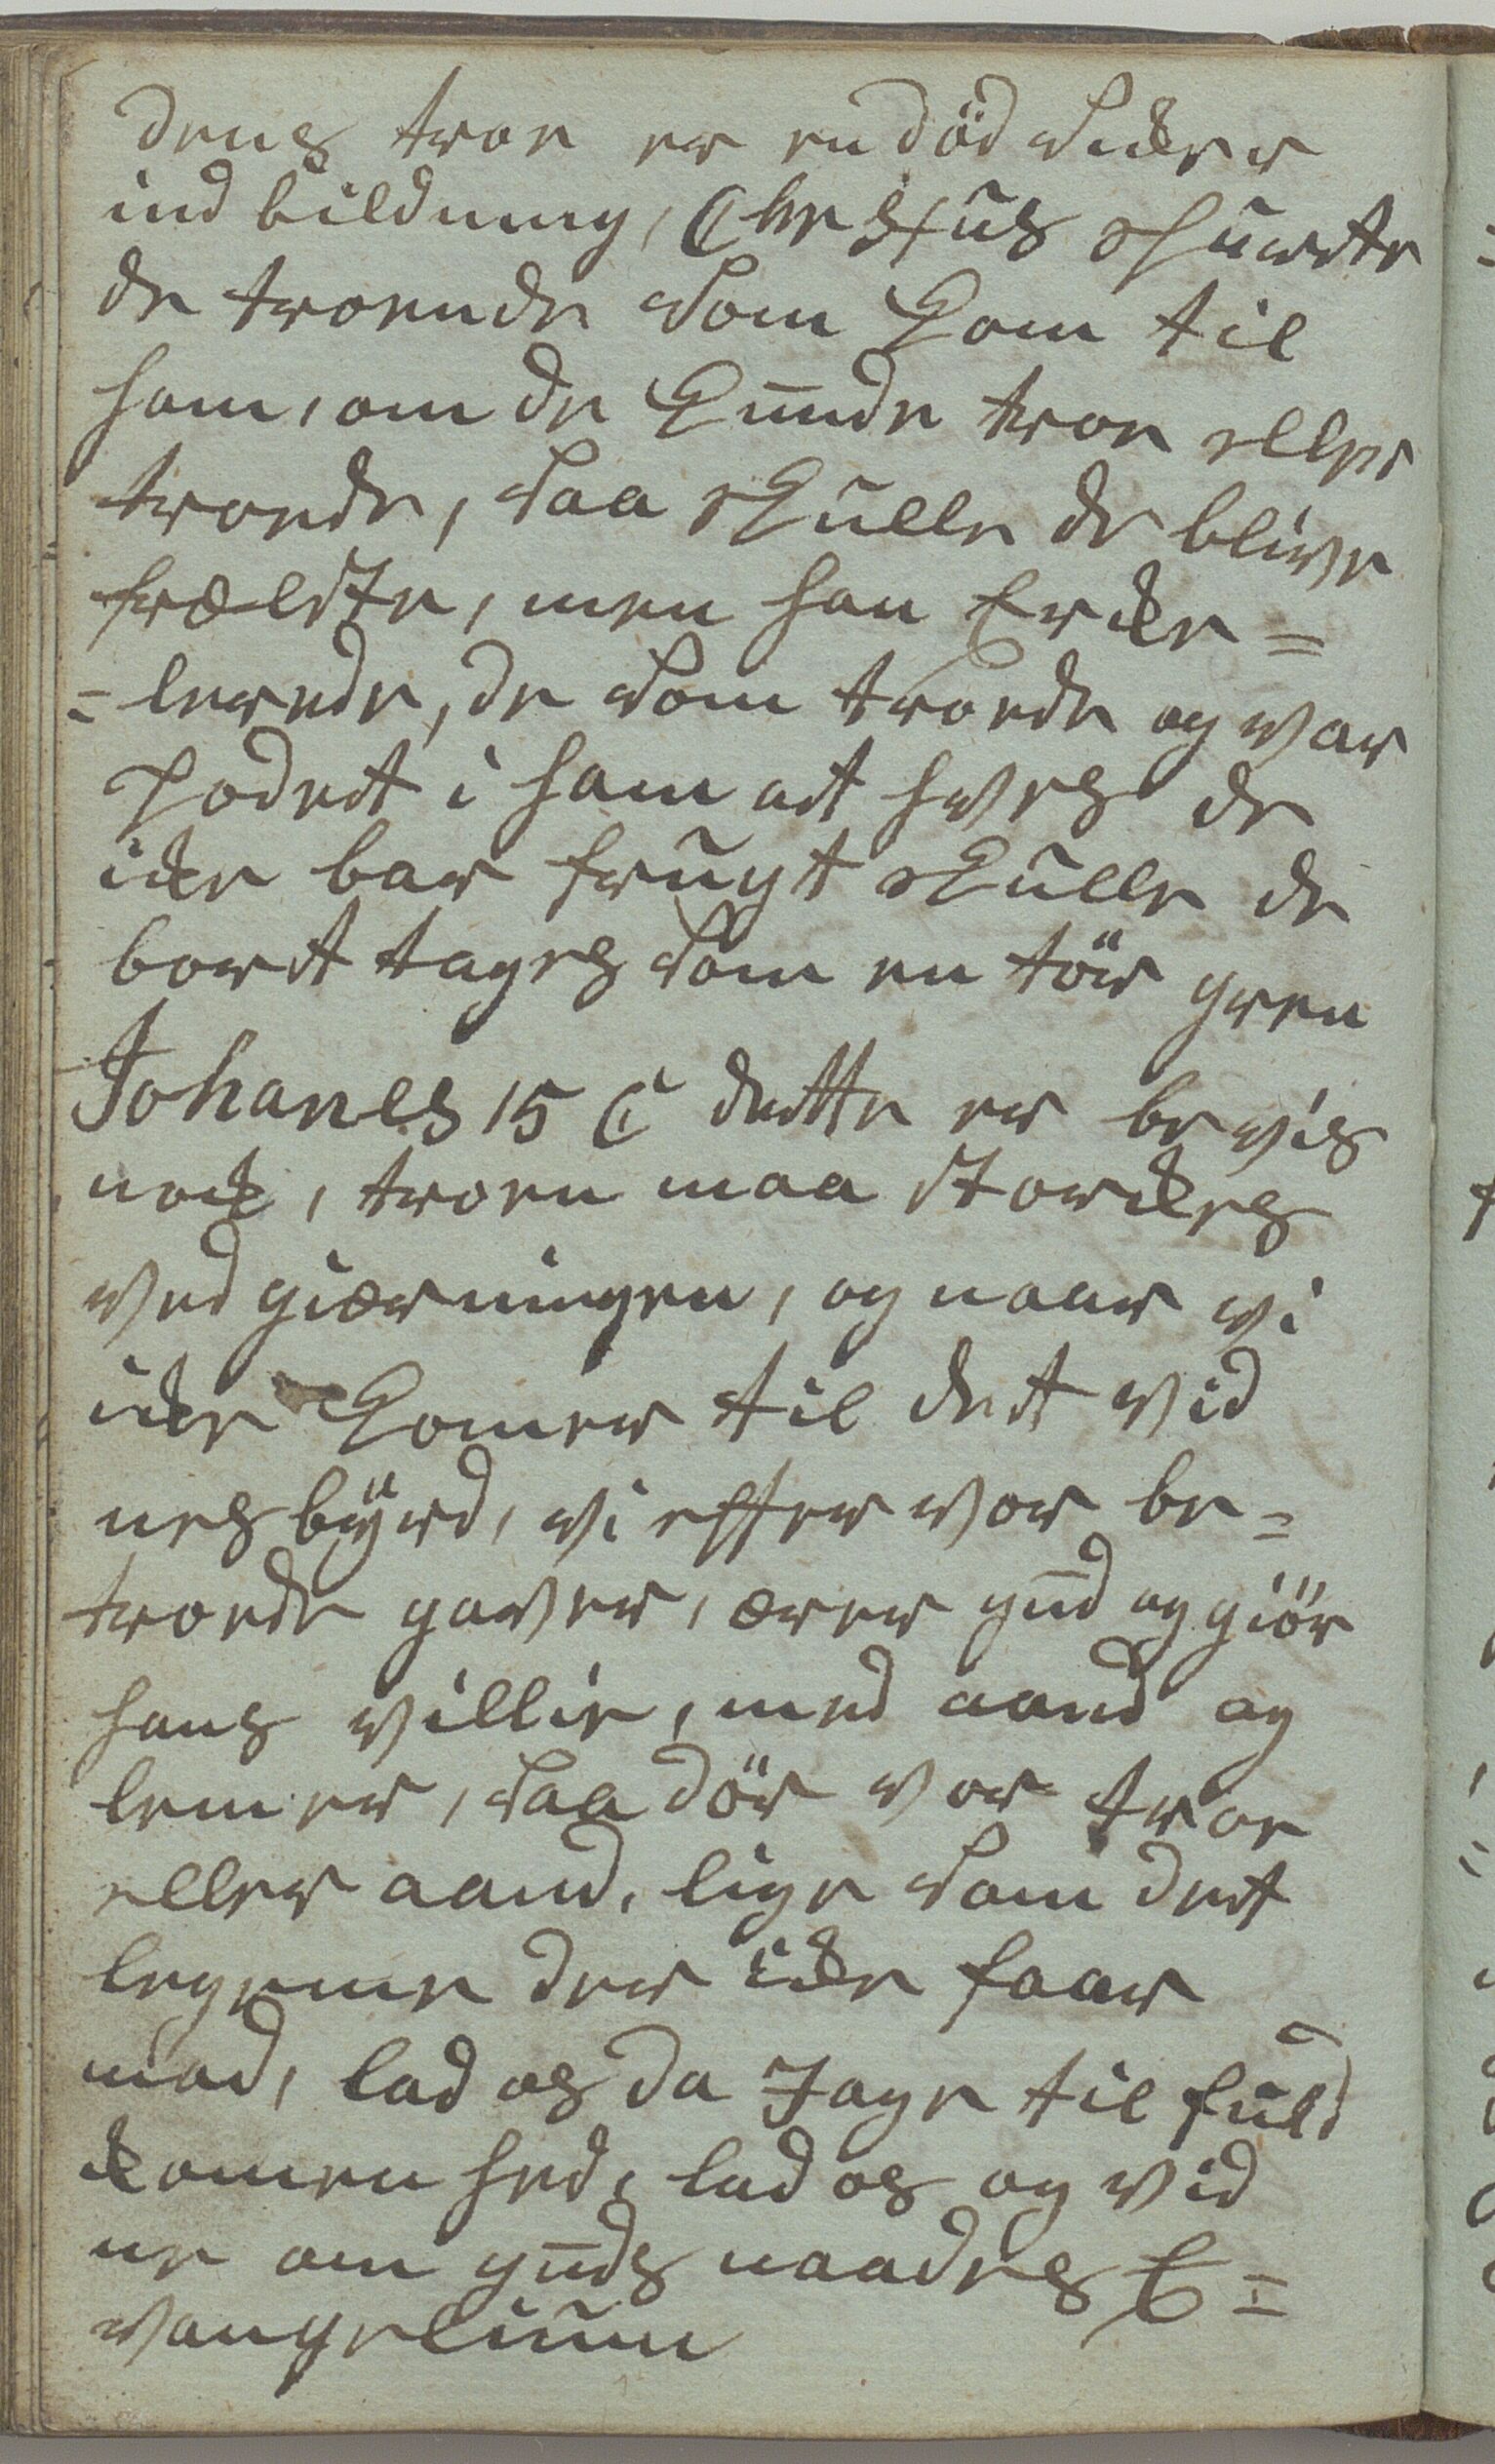 dens troe er en död sicker
ind bildning, Chrestus schuarte
de troende som kom til
ham, om de kunde troe eller
troede, saa skulle de blive
frælste, men han Ercke=
=lerede, de som troede og var
podett i ham att hves de
icke bar frugt skulle de
bortt tages som en tör green
Johanes 15 C dette er bevis
nock, troen maa størckes
ved giærningen, og naar vi
icke komer til dett vid
nesbÿrd, vi efter vor be=
troede gaver, ærer gud og giör
hans villie, med aand og
lemer, saa dör vor troe
eller aand, lige som dett
legeme der icke faar
mad, lad os da Jage til fuld
komen hed, lad os og vid
ne om guds naades E=
vangelium